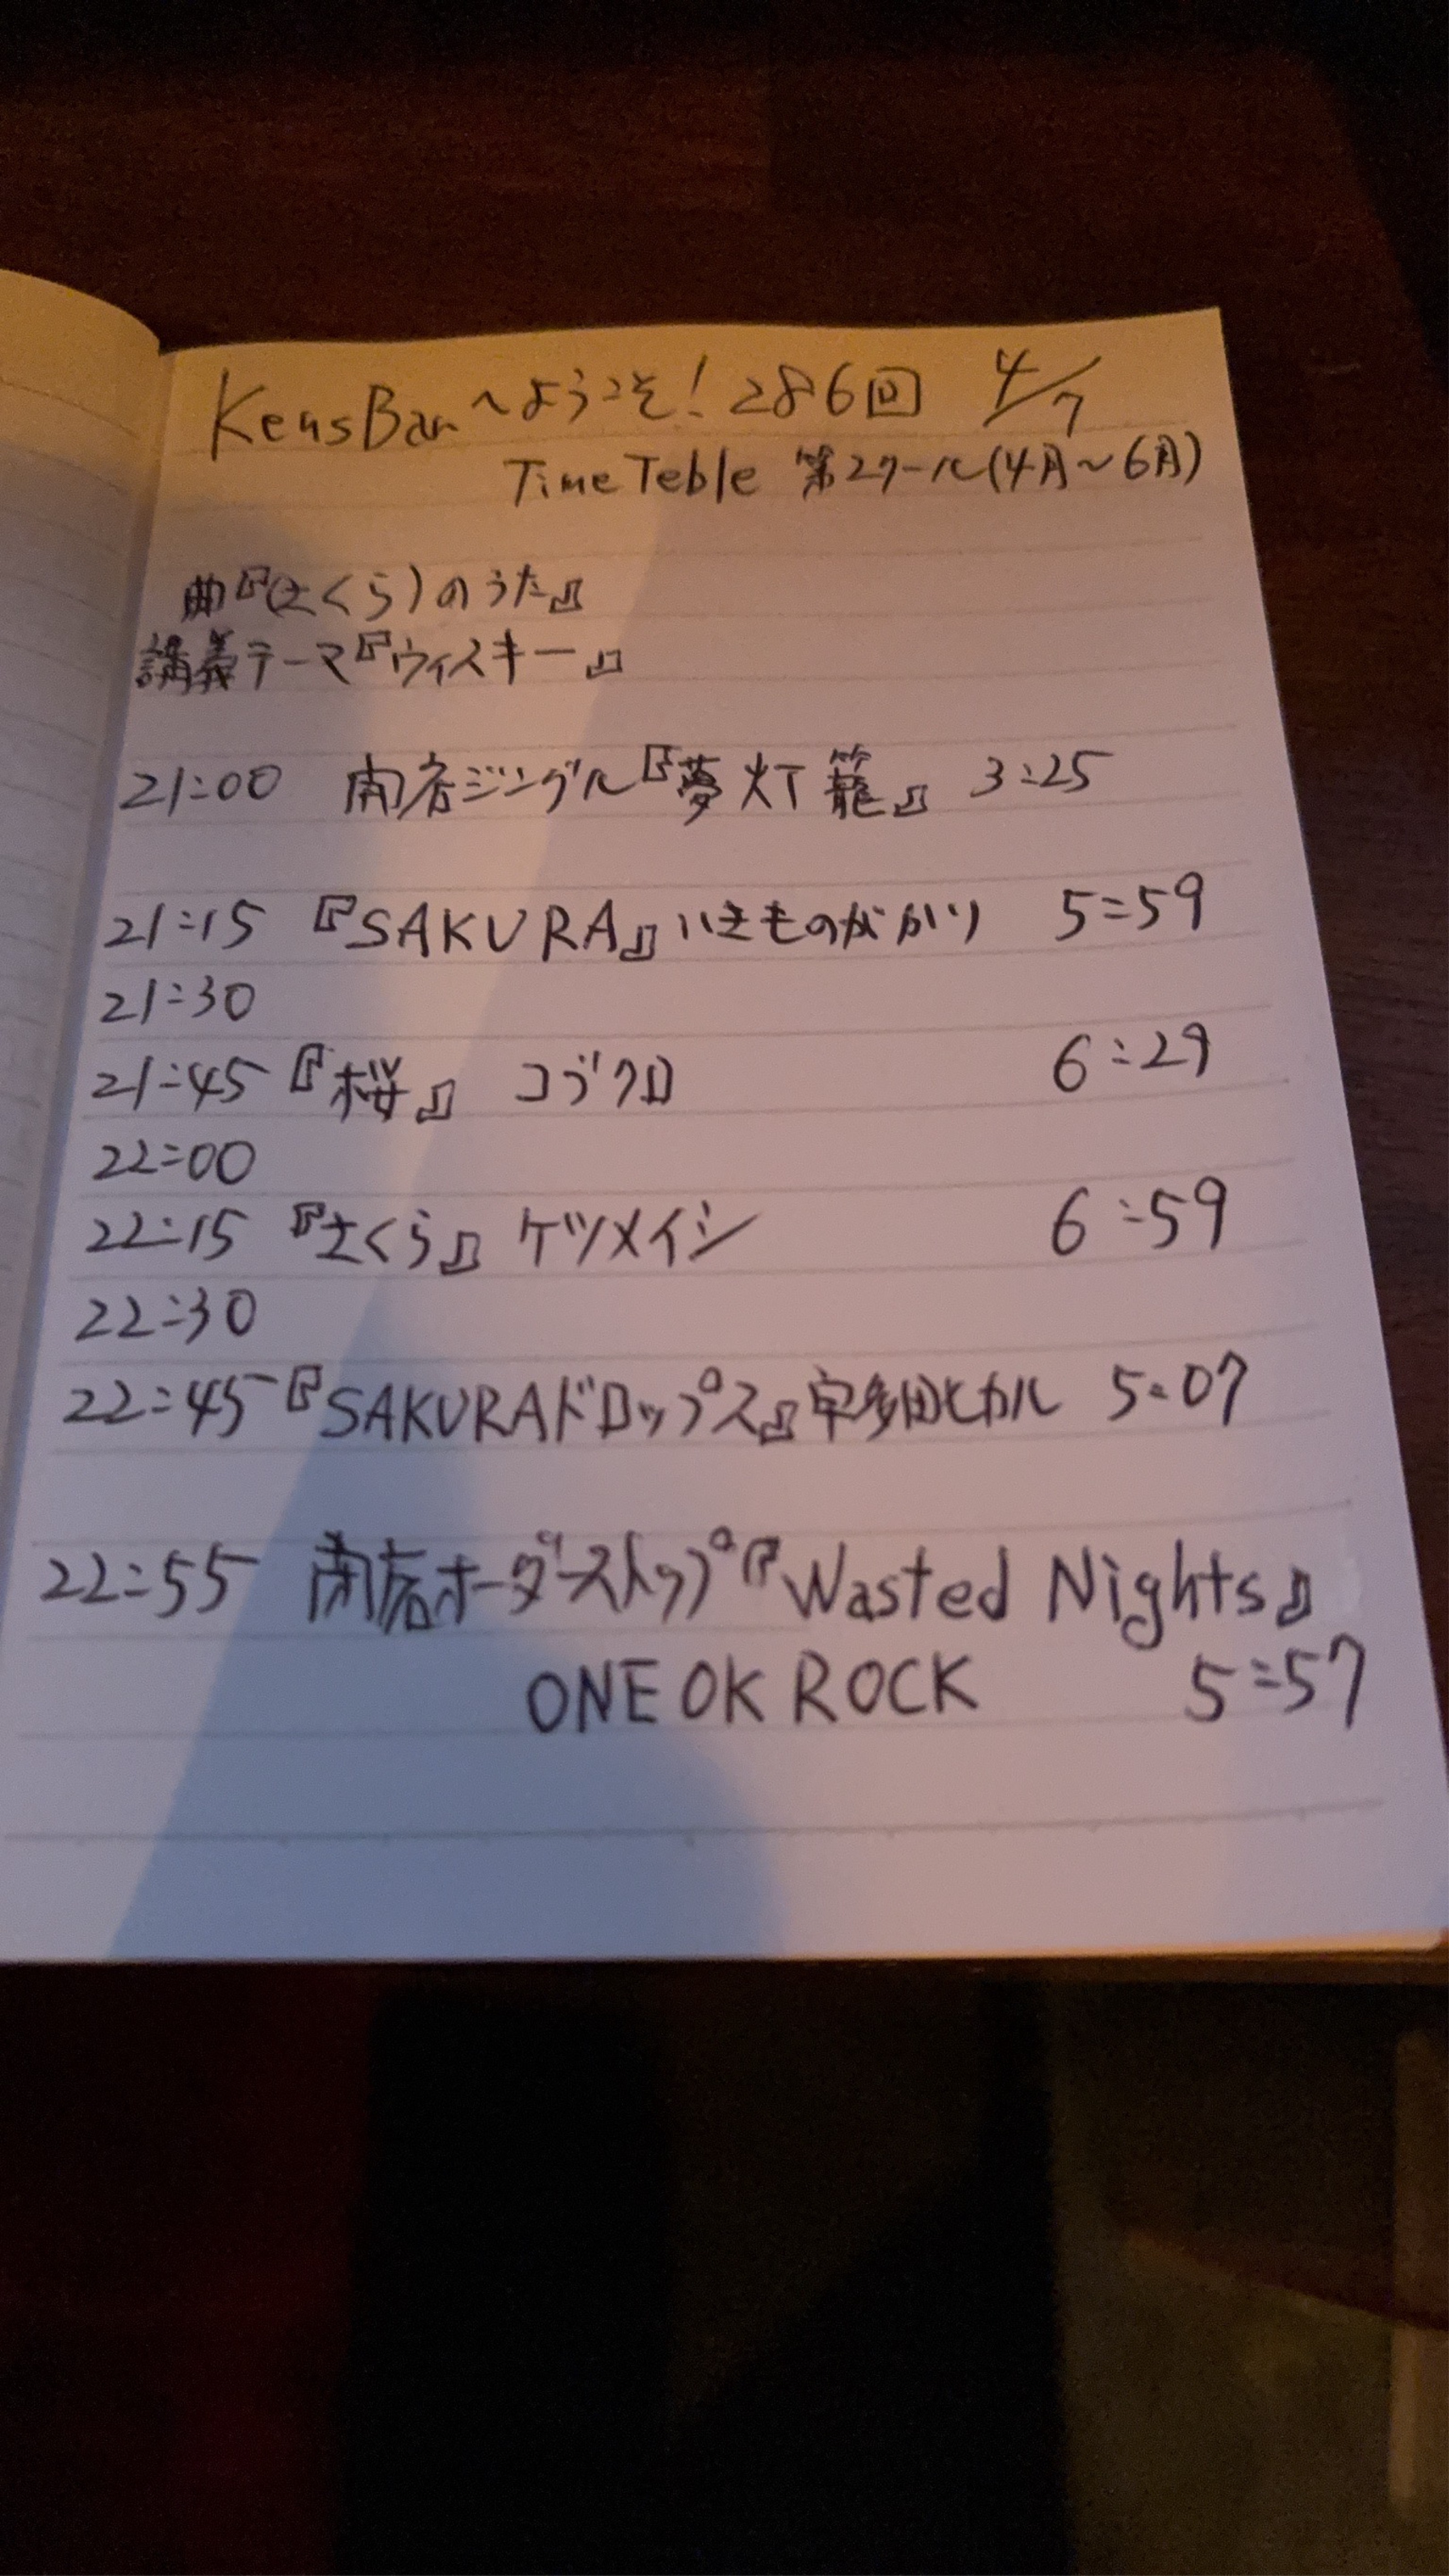 KensBarへようこそ!286回 4/7
TimeTeble 第2クール(4月〜6月)
曲『(さくら)のうた』
講義テーマ『ウィスキー』
21:00 開店ジングル『夢灯籠』 3:25
21:15 『SAKURA』いきものがかり 5:59
21:30
21:45 『桜』 コブクロ 6:29
22:00
22:15 『さくら』ケツメイシ 6:59
22:30
22:45 『SAKURAドロップス』宇多田ヒカル 5:07
22:55 閉店オーダーストップ『Wasted Nights』
ONE OK ROCK 5:57